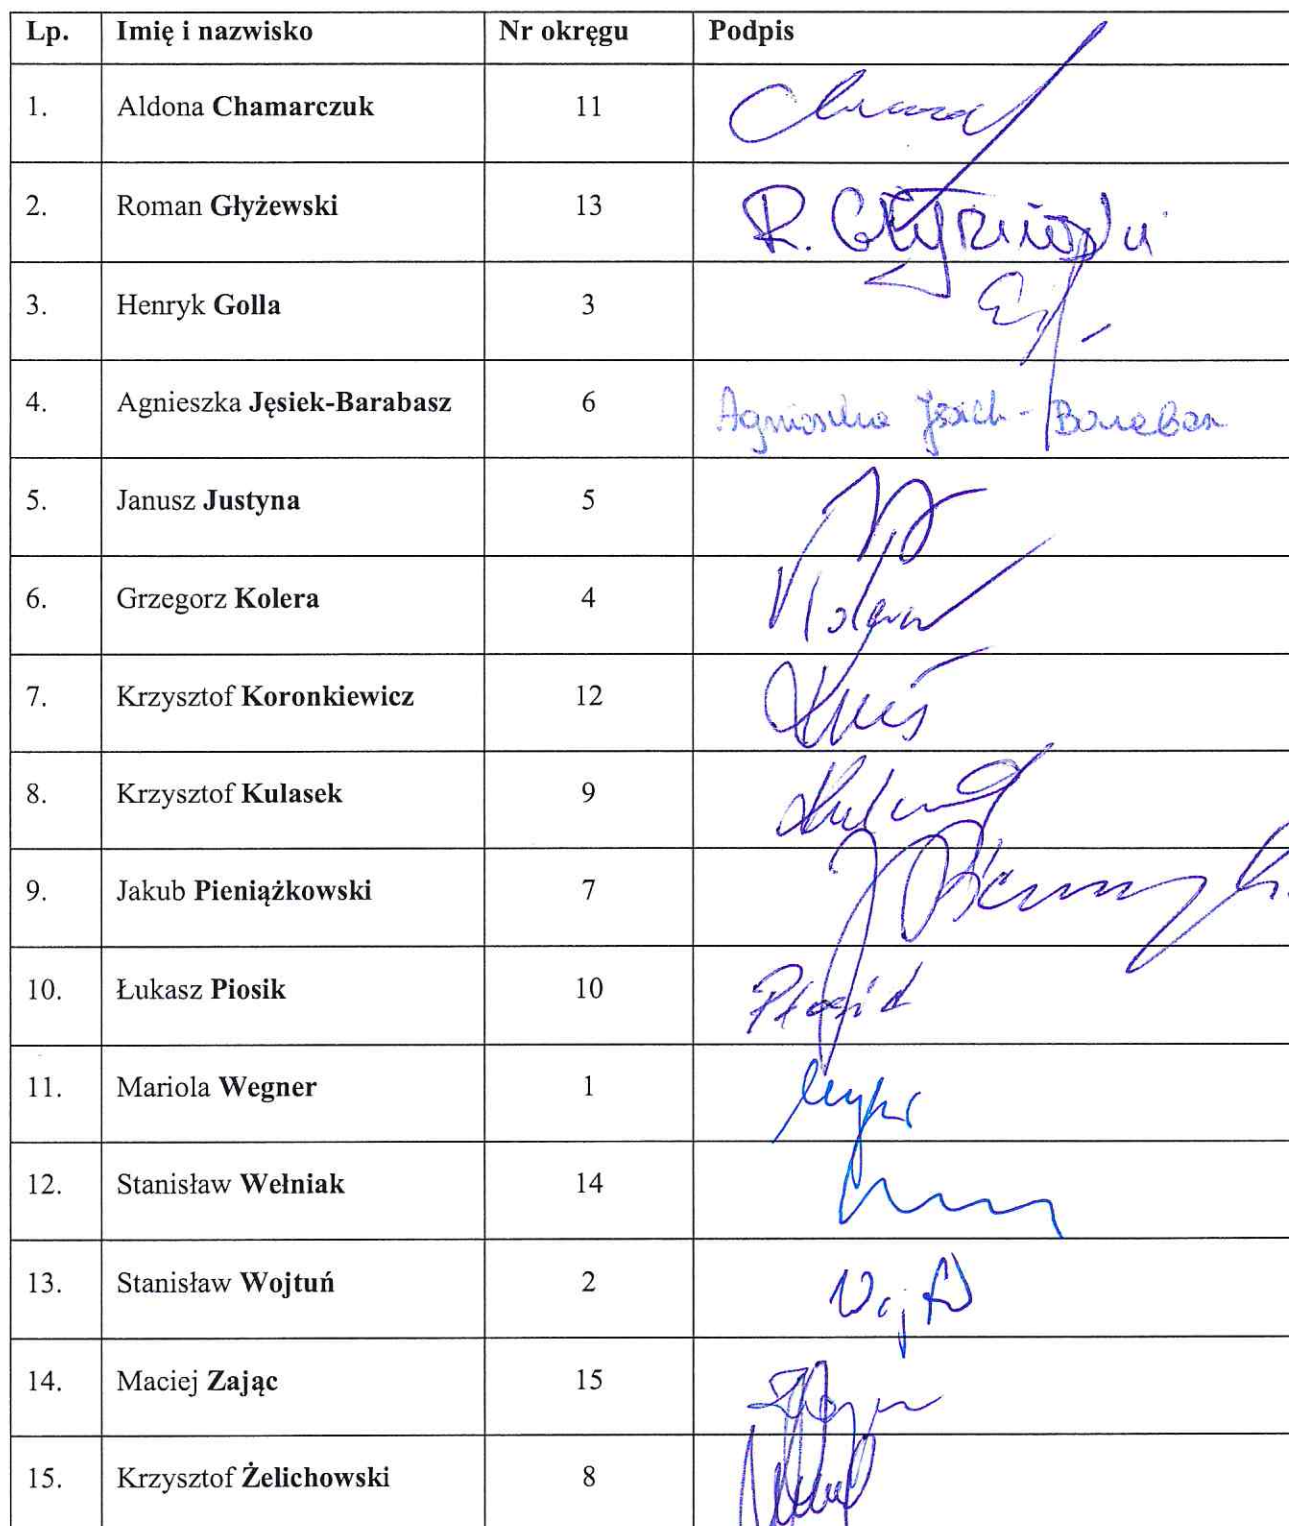 Lp. Imię i nazwisko Nr okręgu Podpis
1. Aldona Chamarczuk 11
2. Roman Głyżewski 13 R.
3. Henryk Golla 3
4. Agnieszka Jęsiek-Barabasz 6 Agnieszka
5. Janusz Justyna 5
6. Grzegorz Kolera 4
7. Krzysztof Koronkiewicz 12
8. Krzysztof Kulasek 9
9. Jakub Pieniążkowski 7
10. Łukasz Piosik 10 Piosik
11. Mariola Wegner 1
12. Stanisław Wełniak 14
13. Stanisław Wojtuń 2
14. Maciej Zając 15
15. Krzysztof Żelichowski 8